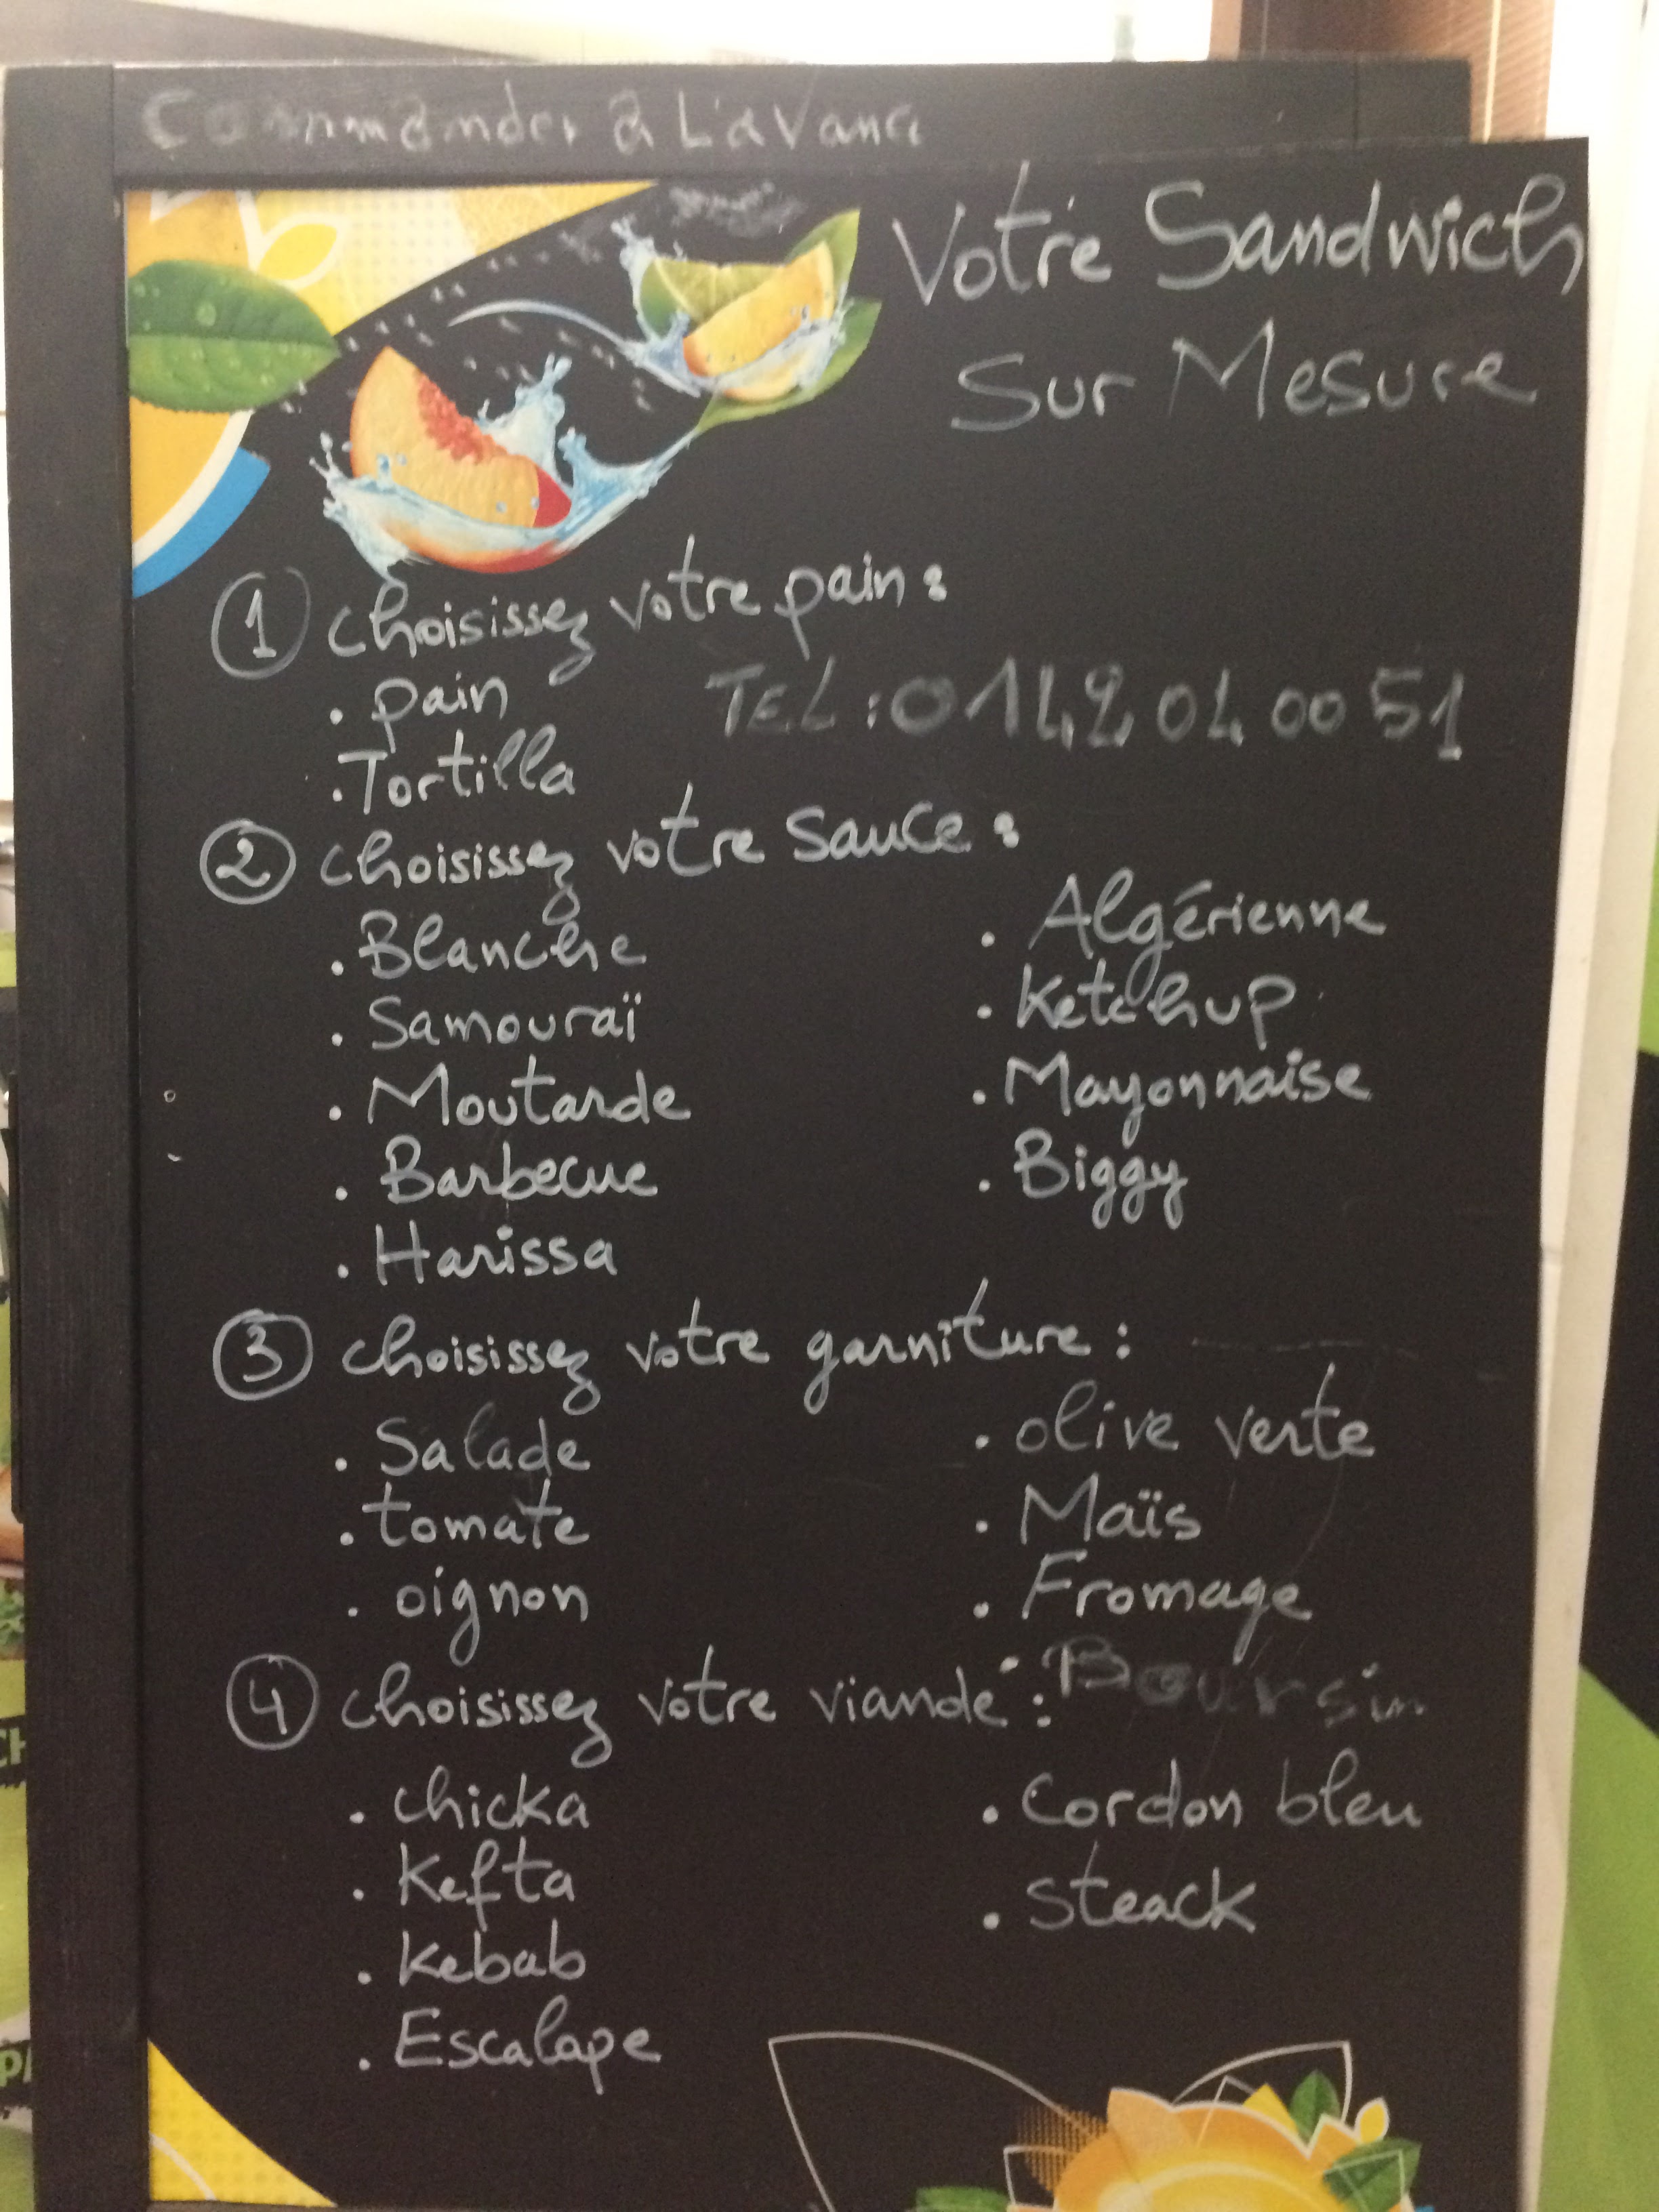 Commander à L'avance
Votre Sandwich
Sur Mesure
① choisissez votre pain :
. pain
TEL : 01 42 04 00 51
. Tortilla
② choisissez votre sauce :
. Blanche
. Samouraï
. Moutarde
. Barbecue
. Harissa
. Algérienne
. Ketchup
. Mayonnaise
. Biggy
③ choisissez votre garniture :
. Salade
. tomate
. oignon
. olive verte
. Maïs
. Fromage
. Boursin
④ choisissez votre viande :
. chicka
. Kefta
. kebab
. Escalape
. Cordon bleu
. steack